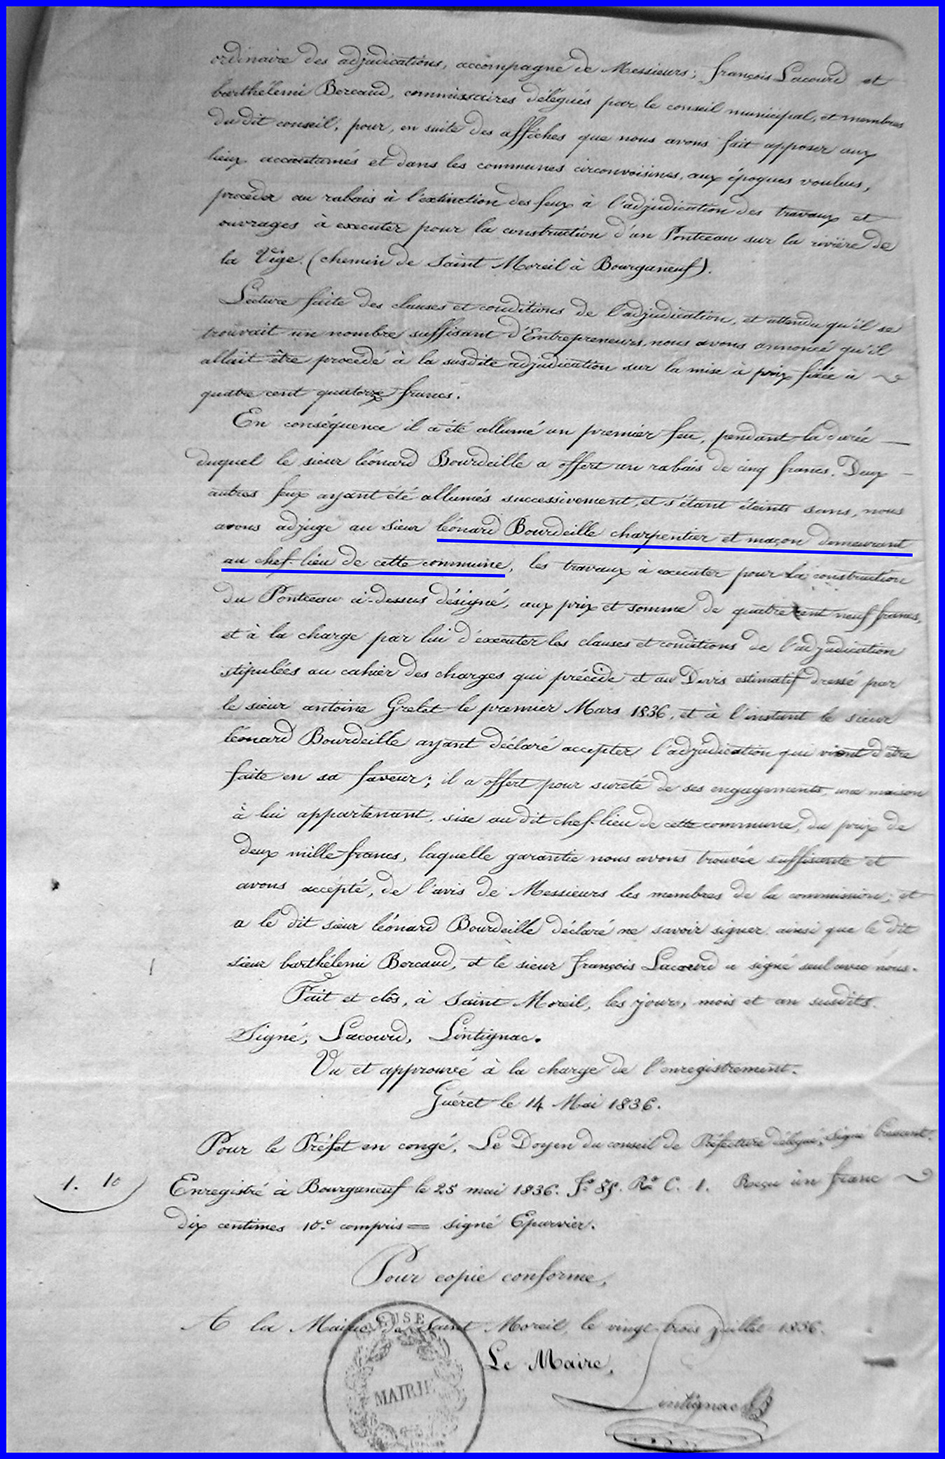 ordinaire des adjudications, accompagné de Messieurs, françois Lacourd et
barthélemi Bercaud, commissaires délégués par le conseil municipal, et membres
du dit conseil, pour, en suite des affiches que nous avons fait apposer aux
lieux accoutumés et dans les communes circonvoisines, aux époques voulues,
procéder au rabais à l'extinction des feux à l'adjudication des travaux et
ouvrages à executer pour la construction d'un Ponteau sur la rivière de
la Vige. (chemin de Saint Moreil à Bourganeuf).
Lecture faite des clauses et conditions de l'adjudication, et attendu qu'il se
trouvait un nombre suffisant d'Entrepreneurs, nous avons annoncé qu'il
allait être procédé à la susdite adjudication sur la mise à prix fixée à
quatre cent quatorze francs.
En conséquence il a été allumé un premier feu, pendant la durée
duquel le sieur léonard Bourdeille a offert un rabais de cinq francs. Deux
autres feux ayant été allumés successivement, et s'étant éteints sans, nous
avons adjugé au sieur léonard Bourdeille charpentier et maçon demeurant
au chef-lieu de cette commune, les travaux à executer pour la construction
du Ponteau ci-dessus désigné, aux prix et somme de quatre cent neuf francs,
et à la charge par lui d'executer les clauses et conditions de l'adjudication
stipulées au cahier des charges qui précède et au Devis estimatif dressé par
le sieur antoine Grelet le premier Mars 1836, et à l'instant le sieur
léonard Bourdeille ayant déclaré accepter l'adjudication qui vient d'être
faite en sa faveur; il a offert pour sureté de ses engagements une maison
à lui appartenant, sise au dit chef-lieu de cette commune, du prix de
deux mille francs, laquelle garantie nous avons trouvée suffisante et
avons accépté, de l'avis de Messieurs les membres de la commission; et
a le dit sieur léonard Bourdeille déclaré ne savoir signer ainsi que le dit
sieur barthélemi Bercaud, et le sieur françois Lacourd a signé seul avec nous.
Fait et clos, à Saint Moreil, les jours, mois et an susdits.
Signé, Lacourd, Lintignac.
Vu et approuvé à la charge de l'enregistrement.
Guéret le 14 Mai 1836.
Pour le Préfet en congé, Le Doyen du conseil de Préfecture délégué, signé
1. 10 Enregistré à Bourganeuf le 25 mai 1836. f° 85. R° C. 1. Reçu un franc
dix centimes 10e compris = signé Epurvier.
Pour copie conforme,
A la Mairie de Saint Moreil, le vingt trois juillet 1836.
Le Maire,
Lintignac
CREUSE
MAIRIE